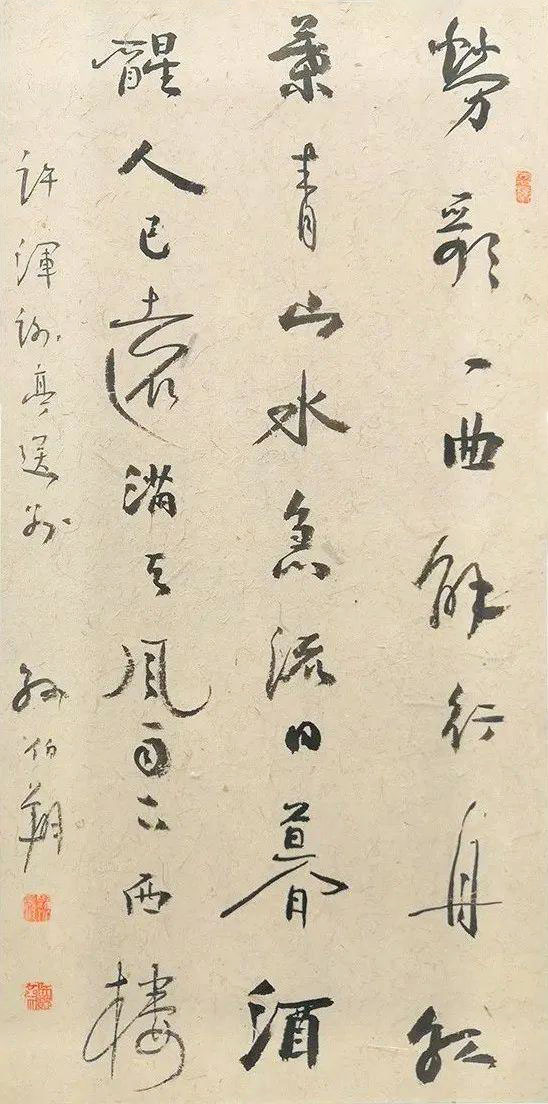 勞歌一曲解行舟紅
葉青山水急流日暮酒
醒人已遠滿天風雨下西樓
許渾謝亭送別 孫伯翔